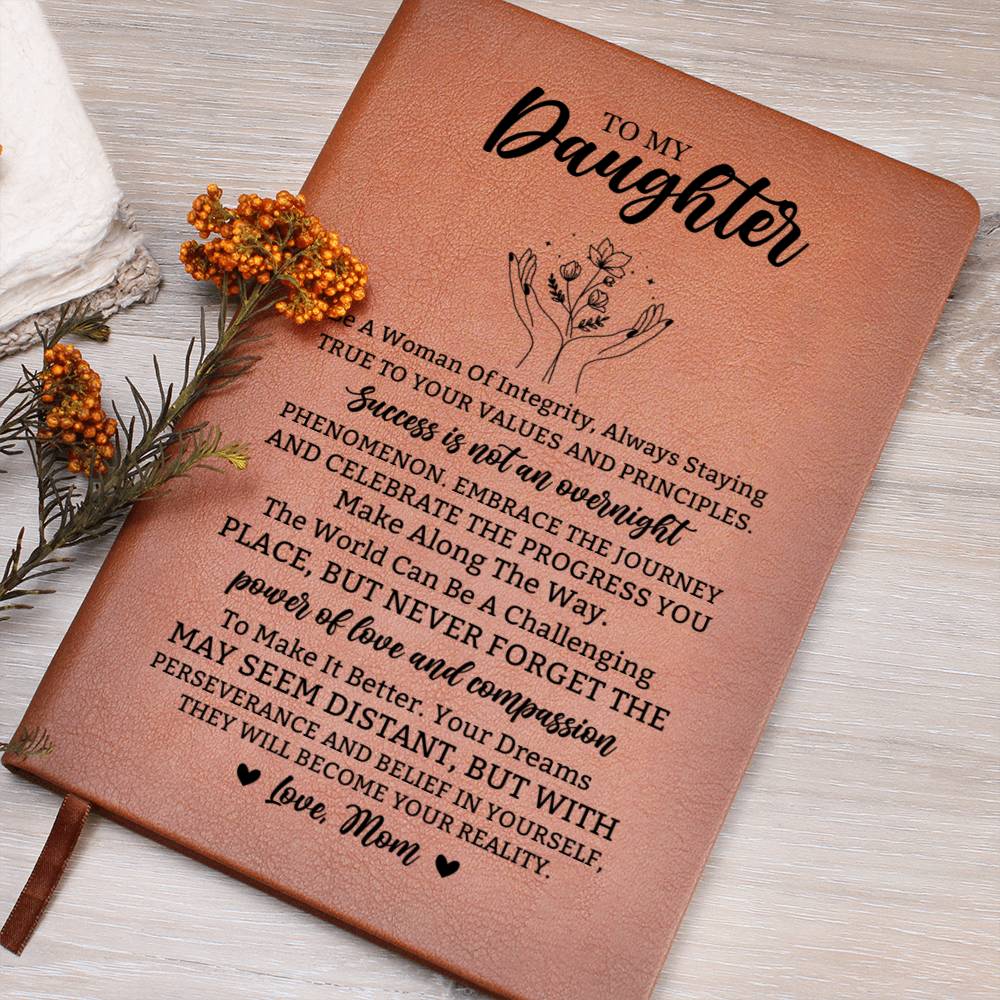 TO MY
Daughter
Be A Woman Of Integrity, Always Staying
TRUE TO YOUR VALUES AND PRINCIPLES.
Success is not an overnight
PHENOMENON. EMBRACE THE JOURNEY
AND CELEBRATE THE PROGRESS YOU
Make Along The Way.
The World Can Be A Challenging
PLACE, BUT NEVER FORGET THE
power of love and compassion
To Make It Better. Your Dreams
MAY SEEM DISTANT, BUT WITH
PERSEVERANCE AND BELIEF IN YOURSELF,
THEY WILL BECOME YOUR REALITY.
Love, Mom